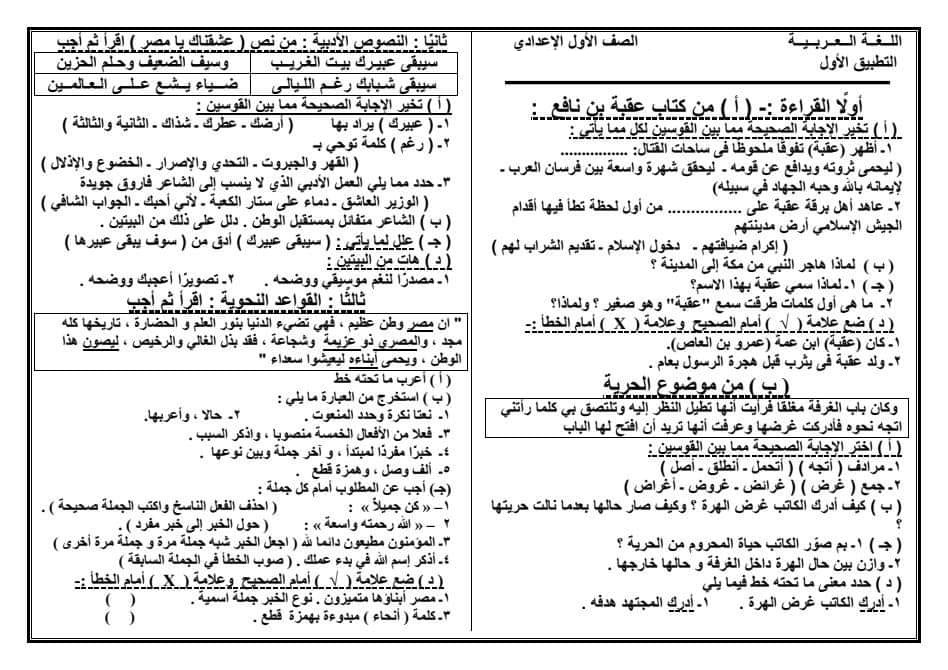 اللـغـة الـعـربـيـة الصف الأول الإعدادي
التطبيق الأول
أولًا القراءة :- ( أ ) من كتاب عقبة بن نافع :
( أ ) تخير الإجابة الصحيحة مما بين القوسين لكل مما يأتي :
١- أظهر (عقبة) تفوقًا ملحوظًا فى ساحات القتال: ................
( ليحمى ثروته ويدافع عن قومه ـ ليحقق شهرة واسعة بين فرسان العرب ـ
لإيمانه بالله وحبه الجهاد في سبيله)
٢- عاهد أهل برقة عقبة على ................ من أول لحظة تطأ فيها أقدام
الجيش الإسلامي أرض مدينتهم
( إكرام ضيافتهم ـ دخول الإسلام ـ تقديم الشراب لهم )
( ب ) لماذا هاجر النبي من مكة إلى المدينة ؟
( جـ ) ١- لماذا سمي عقبة بهذا الاسم؟
٢- ما هى أول كلمات طرقت سمع "عقبة" وهو صغير ؟ ولماذا؟
( د ) ضع علامة ( √ ) أمام الصحيح وعلامة ( X ) أمام الخطأ :-
١- كان (عقبة) ابن عمة (عمرو بن العاص).
٢- ولد عقبة فى يثرب قبل هجرة الرسول بعام .
( ب ) من موضوع الحرية
وكان باب الغرفة مغلقا فرأيت أنها تطيل النظر إليه وتلتصق بي كلما رأتني
اتجه نحوه فأدركت غرضها وعرفت أنها تريد أن افتح لها الباب
( أ ) اختر الإجابة الصحيحة مما بين القوسين :
١- مرادف ( أتجه ) ( أتحمل ـ أنطلق ـ أصل )
٢- جمع ( غرض ) ( غرائض ـ غروض ـ أغراض )
( ب ) كيف أدرك الكاتب غرض الهرة ؟ وكيف صار حالها بعدما نالت حريتها
؟
( جـ ) ١- بم صوّر الكاتب حياة المحروم من الحرية ؟
٢- وازن بين حال الهرة داخل الغرفة و حالها خارجها .
( د ) حدد معنى ما تحته خط فيما يلي
١- أدرك الكاتب غرض الهرة . ١- أدرك المجتهد هدفه .
ثانيًا : النصوص الأدبية : من نص ( عشقناك يا مصر ) اقرأ ثم أجب
سيبقى عبيـرك بيـت الغريـب وسيف الضعيف وحـلم الحزين
سيبقى شـبابك رغـم الليـالى ضـيـاء يـشـع علـى الـعـالمـين
( أ ) تخير الإجابة الصحيحة مما بين القوسين :
١- ( عبيرك ) يراد بها ( أرضك ـ عطرك ـ شذاك ـ الثانية والثالثة )
٢- ( رغم ) كلمة توحي بـ
( القهر والجبروت ـ التحدي والإصرار ـ الخضوع والإذلال )
٣- حدد مما يلي العمل الأدبي الذي لا ينسب إلى الشاعر فاروق جويدة
( الوزير العاشق ـ دماء على ستار الكعبة ـ لأني أحبك ـ الجواب الشافي )
( ب ) الشاعر متفائل بمستقبل الوطن . دلل على ذلك من البيتين .
( جـ ) علل لما يأتي : ( سيبقى عبيرك ) أدق من ( سوف يبقى عبيرها )
( د ) هات من البيتين :
١- مصدرًا لنغم موسيقي ووضحه . ٢- تصويرًا أعجبك ووضحه .
ثالثًا : القواعد النحوية : اقرأ ثم أجب
" ان مصر وطن عظيم ، فهي تضيء الدنيا بنور العلم و الحضارة ، تاريخها كله
مجد ، والمصري ذو عزيمة وشجاعة ، فقد بذل الغالي والرخيص ، ليصون هذا
الوطن ، ويحمى أبناءه ليعيشوا سعداء "
( أ ) أعرب ما تحته خط
( ب ) استخرج من العبارة ما يلي :
١- نعتا نكرة وحدد المنعوت . ٢- حالا ، وأعربها.
٣- فعلا من الأفعال الخمسة منصوبا ، واذكر السبب .
٤- خبرًا مفردًا لمبتدأ ، و آخر جملة وبين نوعها .
٥- ألف وصل ، وهمزة قطع .
(جـ) أجب عن المطلوب أمام كل جملة :
١– « كن جميلاً » : ( احذف الفعل الناسخ واكتب الجملة صحيحة ) .
٢ – « الله رحمته واسعة » : ( حول الخبر إلى خبر مفرد ) .
٣- المؤمنون مطيعون دائما لله ( اجعل الخبر شبه جملة مرة و جملة مرة أخرى )
٤- أذكر إسم الله في بدء عملك . ( صوب الخطأ في الجملة السابقة )
( د ) ضع علامة ( √ ) أمام الصحيح وعلامة ( X ) أمام الخطأ :-
١- مصر أبناؤها متميزون . نوع الخبر جملة اسمية . ( )
٣- كلمة ( أنحاء ) مبدوءة بهمزة قطع . ( )